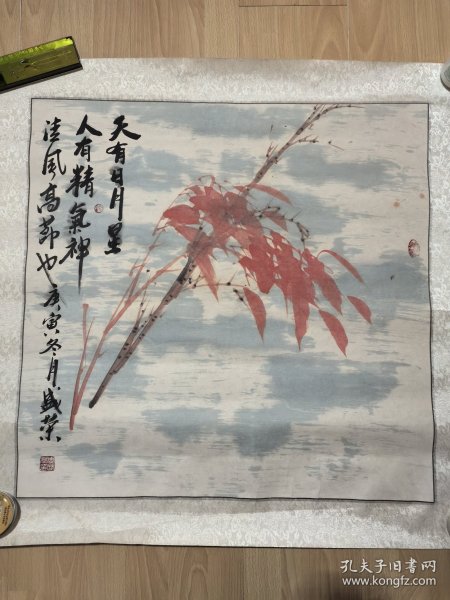 天有日月星
人有精氣神
清風高節也庚寅冬月盛荣
孔夫子旧书网
www.kongfz.com